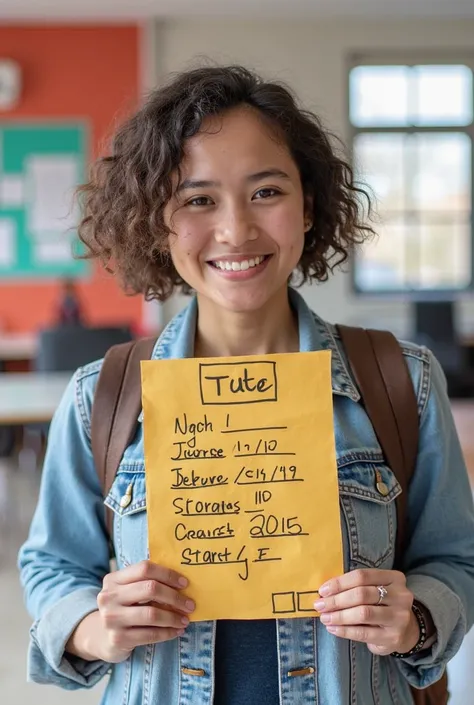 Tute
Ngch 1
Jwrse 11/10
Debure /C14/19
Storatas 110
Cearst 2015
Start/y E